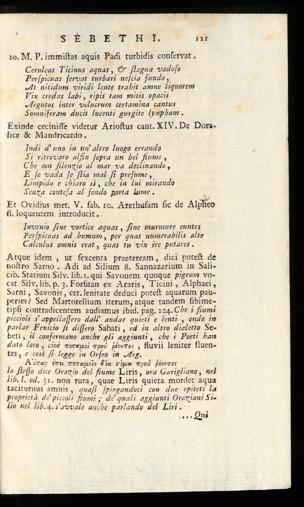 SEBETHI. 121
10. M. P. immistas aquis Padi turbidis conservat.
Ceruleas Ticinus aquas, & stagna vadoso
Perspicuas servat turbari nescia fundo,
At nitidum viridi lente trahit amne liquorem
Vix credas labi, ripis tam mitis opacis
Argutos inter volucrum certamina cantus
Somniferam ducit lucenti gurgite lympham.
Exinde cecinisse videtur Ariostus cant. XIV. De Dora-
lice & Mandricardo.
Indi d'uno in un'altro luogo errando
Si ritrovaro alfin sopra un bel fiume,
Che con silenzio al mar va declinando,
E se vada se stia mal si presume,
Limpido e chiaro sì, che in lui mirando
Senza contesa al fondo porta lume.
Et Ovidius met. V. fab. 10. Arethusam sic de Alpheo
fl. loquentem introducit.
Invenio sine vortice aquas, sine murmure euntes
Perspicuas ad humum, per quas numerabilis alte
Calculus omnis erat, quas tu vix ire putares.
Atque idem, ut sexcenta praeteream, dici potest de
nostro Sarno. Adi ad Silium 8. Sannazarium in Sali-
cib. Statium Silv. lib. 1. qui Savonem quoque pigrum vo-
cat Silv. lib. p. 3. Forsitan ex Araris, Ticini, Alphaei,
Sarni, Savonis, cet. lenitate deduci potest aquarum pau-
peries? Sed Martorellium iterum, atque tandem sibime-
tipsi contradicentem audiamus ibid. pag. 224. Che i fiumi
piccioli s'appellassero dall' andar quieti e lenti, onde in
parlar Fenicio si dissero Sabati, ed in altro dialetto Se-
beti, il confermano anche gli aggiunti, che i Poeti han
dato loro, cioè ποταμοὶ πρᾳῢ ῥέοντες, fluvii leniter fluen-
tes, e così si legge in Orfeo in Arg.
lo stesso dice Orazio del fiume Liris, ora Garigliano, nel
lib. I. od. 31. non rura, quae Liris quieta mordet aqua
taciturnus amnis, quasi spiegandoci con due epiteti la
proprietà de' piccoli fiumi; de' quali aggiunti Oraziani Si-
lio nel lib. 4. s'avvale anche parlando del Liri.
.... Qui